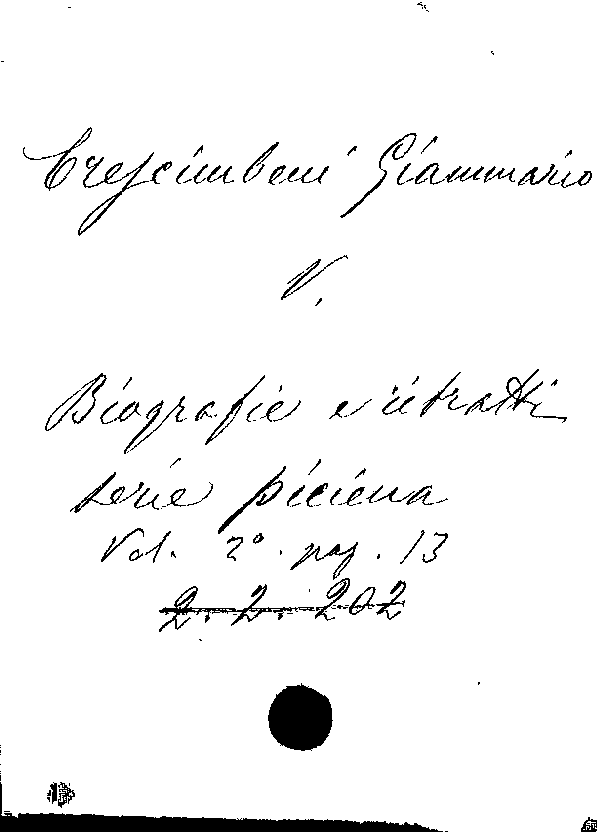 Crescimbeni Giammario
V.
Biografie e ritratti
serie picena
Vol. 2º. pag. 13
2. 2. 202